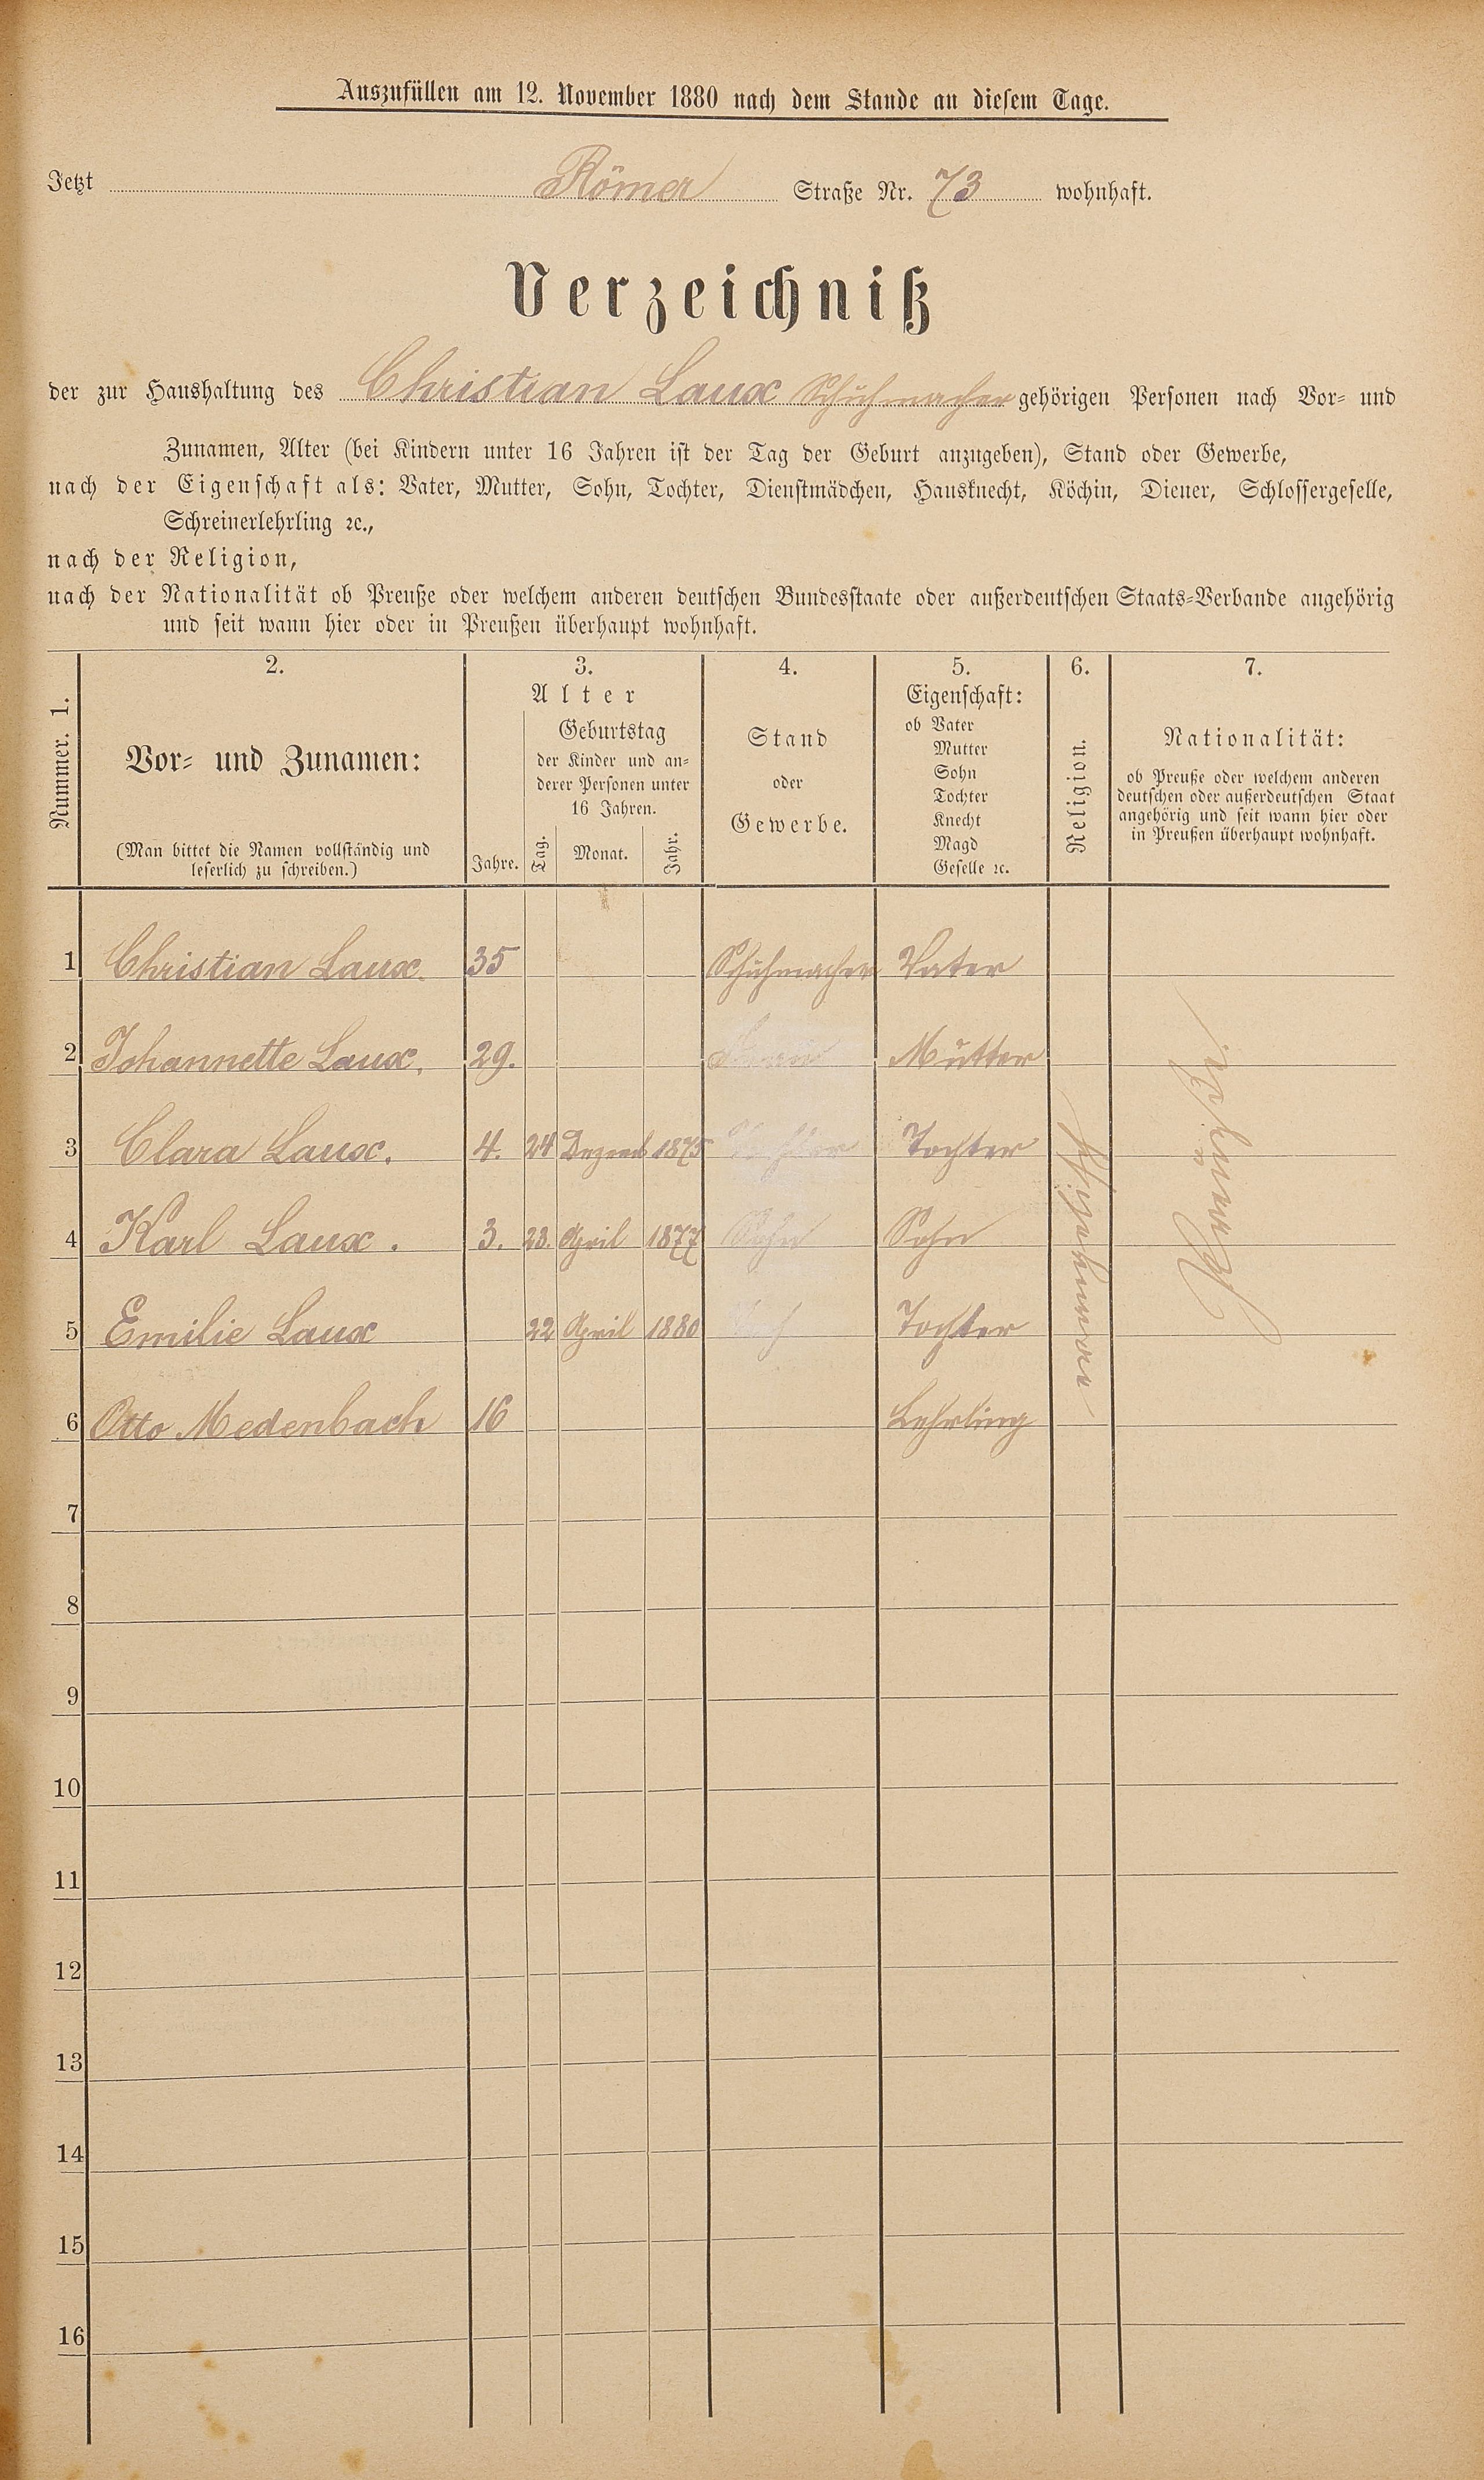 Auszufüllen am 12. November 1880 nach dem Stande an diesem Tage.
Jetzt Römer Straße Nr. 73 wohnhaft.
Verzeichniß
der zur Haushaltung des Christian Laux Schuhmacher gehörigen Personen nach Vor- und
Zunamen, Alter (bei Kindern unter 16 Jahren ist der Tag der Geburt anzugeben), Stand oder Gewerbe,
nach der Eigenschaft als: Vater, Mutter, Sohn, Tochter, Dienstmädchen, Hausknecht, Köchin, Diener, Schlossergeselle,
Schreinerlehrling ꝛc.,
nach der Religion,
nach der Nationalität ob Preuße oder welchem anderen deutschen Bundesstaate oder außerdeutschen Staats-Verbande angehörig
und seit wann hier oder in Preußen überhaupt wohnhaft.
Nummer. 1.
2.
Vor- und Zunamen:
(Man bittet die Namen vollständig und
leserlich zu schreiben.)
3.
Alter
Jahre.
Geburtstag
der Kinder und an-
derer Personen unter
16 Jahren.
Tag. Monat. Jahr.
4.
Stand
oder
Gewerbe.
5.
Eigenschaft:
ob Vater
Mutter
Sohn
Tochter
Knecht
Magd
Geselle ꝛc.
6.
Religion.
7.
Nationalität:
ob Preuße oder welchem anderen
deutschen oder außerdeutschen Staat
angehörig und seit wann hier oder
in Preußen überhaupt wohnhaft.
1 Christian Laux. 35 Schuhmacher Vater
2 Johannette Laux. 29. Mutter
3 Clara Laux. 4. 24 Dezemb 1875 Tochter Tochter
4 Karl Laux. 3. 23. April 1877 Sohn Sohn
5 Emilie Laux 22 April 1880 Toch Tochter
6 Otto Medenbach 16 Lehrling
7
8
9
10
11
12
13
14
15
16